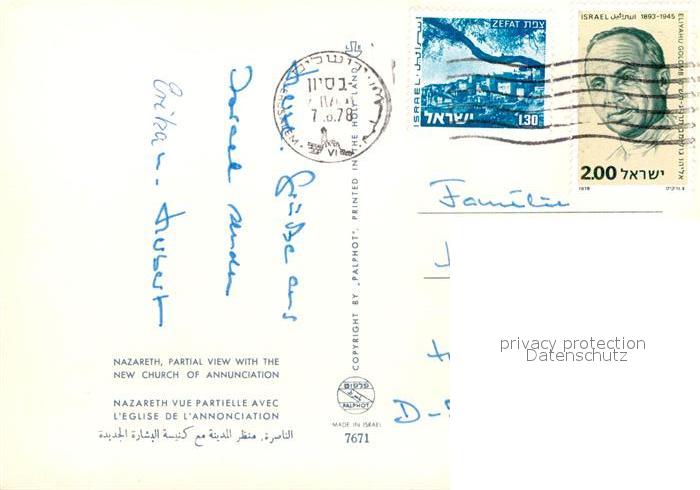 Herzl. Grüße aus
Israel senden
Erika u. Hubert
NAZARETH, PARTIAL VIEW WITH THE
NEW CHURCH OF ANNUNCIATION
NAZARETH VUE PARTIELLE AVEC
L'EGLISE DE L'ANNONCIATION
الناصرة، منظر المدينة مع كنيسة البشارة الجديدة
COPYRIGHT BY „PALPHOT", PRINTED IN THE HOLY LAND
פלפוט
PALPHOT
MADE IN ISRAEL
7671
ירושלים
בסיון
7.6.78
VI
ZEFAT צפת
ISRAEL اسرائيل
ישראל 1.30
ISRAEL اسرائيل 1893-1945
ELIYAHU GOLOMB
2.00 ישראל
1978
Familie
D-
privacy protection
Datenschutz